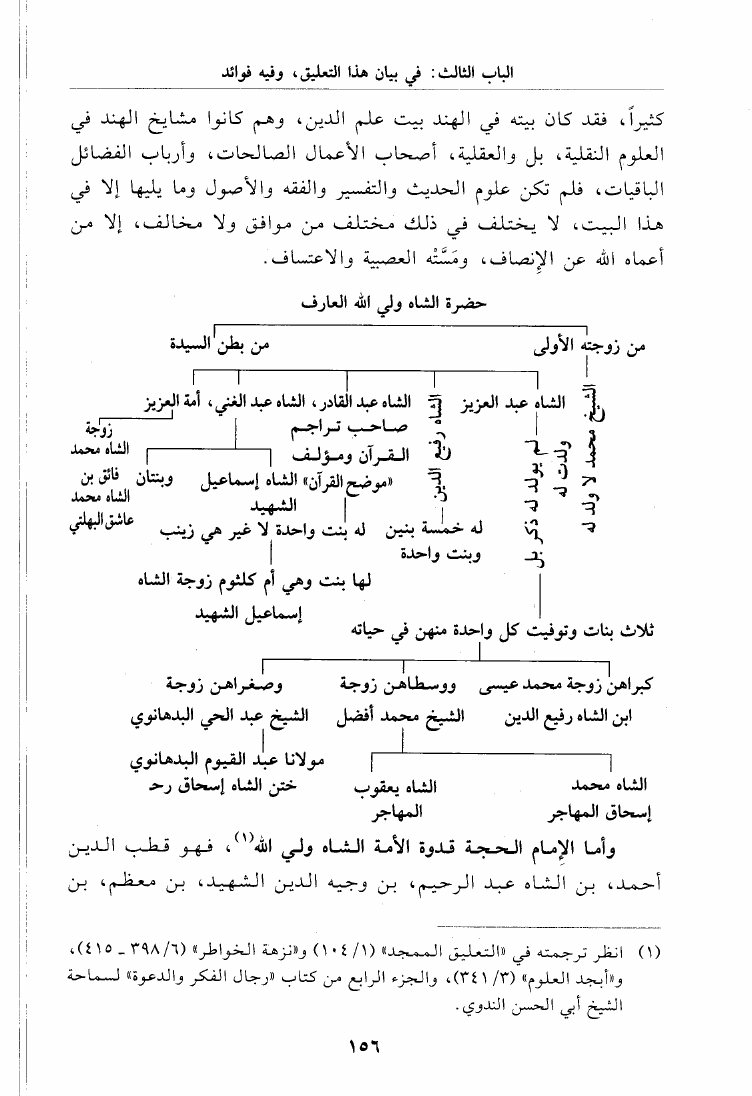 الباب الثالث: في بيان هذا التعليق، وفيه فوائد
كثيراً، فقد كان بيته في الهند بيت علم الدين، وهم كانوا مشايخ الهند في
العلوم النقلية، بل والعقلية، أصحاب الأعمال الصالحات، وأرباب الفضائل
الباقيات، فلم تكن علوم الحديث والتفسير والفقه والأصول وما يليها إلا في
هذا البيت، لا يختلف في ذلك مختلف من موافق ولا مخالف، إلا من
أعماه الله عن الإنصاف، ومَسَّتْه العصبية والاعتساف.
حضرة الشاه ولي الله العارف
من زوجته الأولى
من بطن السيدة
الشيخ محمد لا ولد له
ولدت له
الشاه عبد العزيز
لم يولد له ذكر بل
الشاه رفيع الدين
له خمسة بنين
وبنت واحدة
الشاه عبد القادر، الشاه عبد الغني، أمة العزيز
صاحب تراجم
القرآن ومؤلف
«موضح القرآن»
له بنت واحدة لا غير هي زينب
لها بنت وهي أم كلثوم زوجة الشاه
إسماعيل الشهيد
الشاه إسماعيل
الشهيد
وبنتان
زوجة
الشاه محمد
فائق بن
الشاه محمد
عاشق البهلتي
ثلاث بنات وتوفيت كل واحدة منهن في حياته
كبراهن زوجة محمد عيسى
ابن الشاه رفيع الدين
ووسطاهن زوجة
الشيخ محمد أفضل
وصغراهن زوجة
الشيخ عبد الحي البدهانوي
مولانا عبد القيوم البدهانوي
ختن الشاه إسحاق رحـ
الشاه محمد
إسحاق المهاجر
الشاه يعقوب
المهاجر
وأما الإمام الحجة قدوة الأمة الشاه ولي الله(١)، فهو قطب الدين
أحمد، بن الشاه عبد الرحيم، بن وجيه الدين الشهيد، بن معظم، بن
(١) انظر ترجمته في «التعليق الممجد» (١٠٤/١) و«نزهة الخواطر» (٣٩٨/٦ ـ ٤١٥)،
و«أبجد العلوم» (٣٤١/٣)، والجزء الرابع من كتاب «رجال الفكر والدعوة» لسماحة
الشيخ أبي الحسن الندوي.
١٥٦